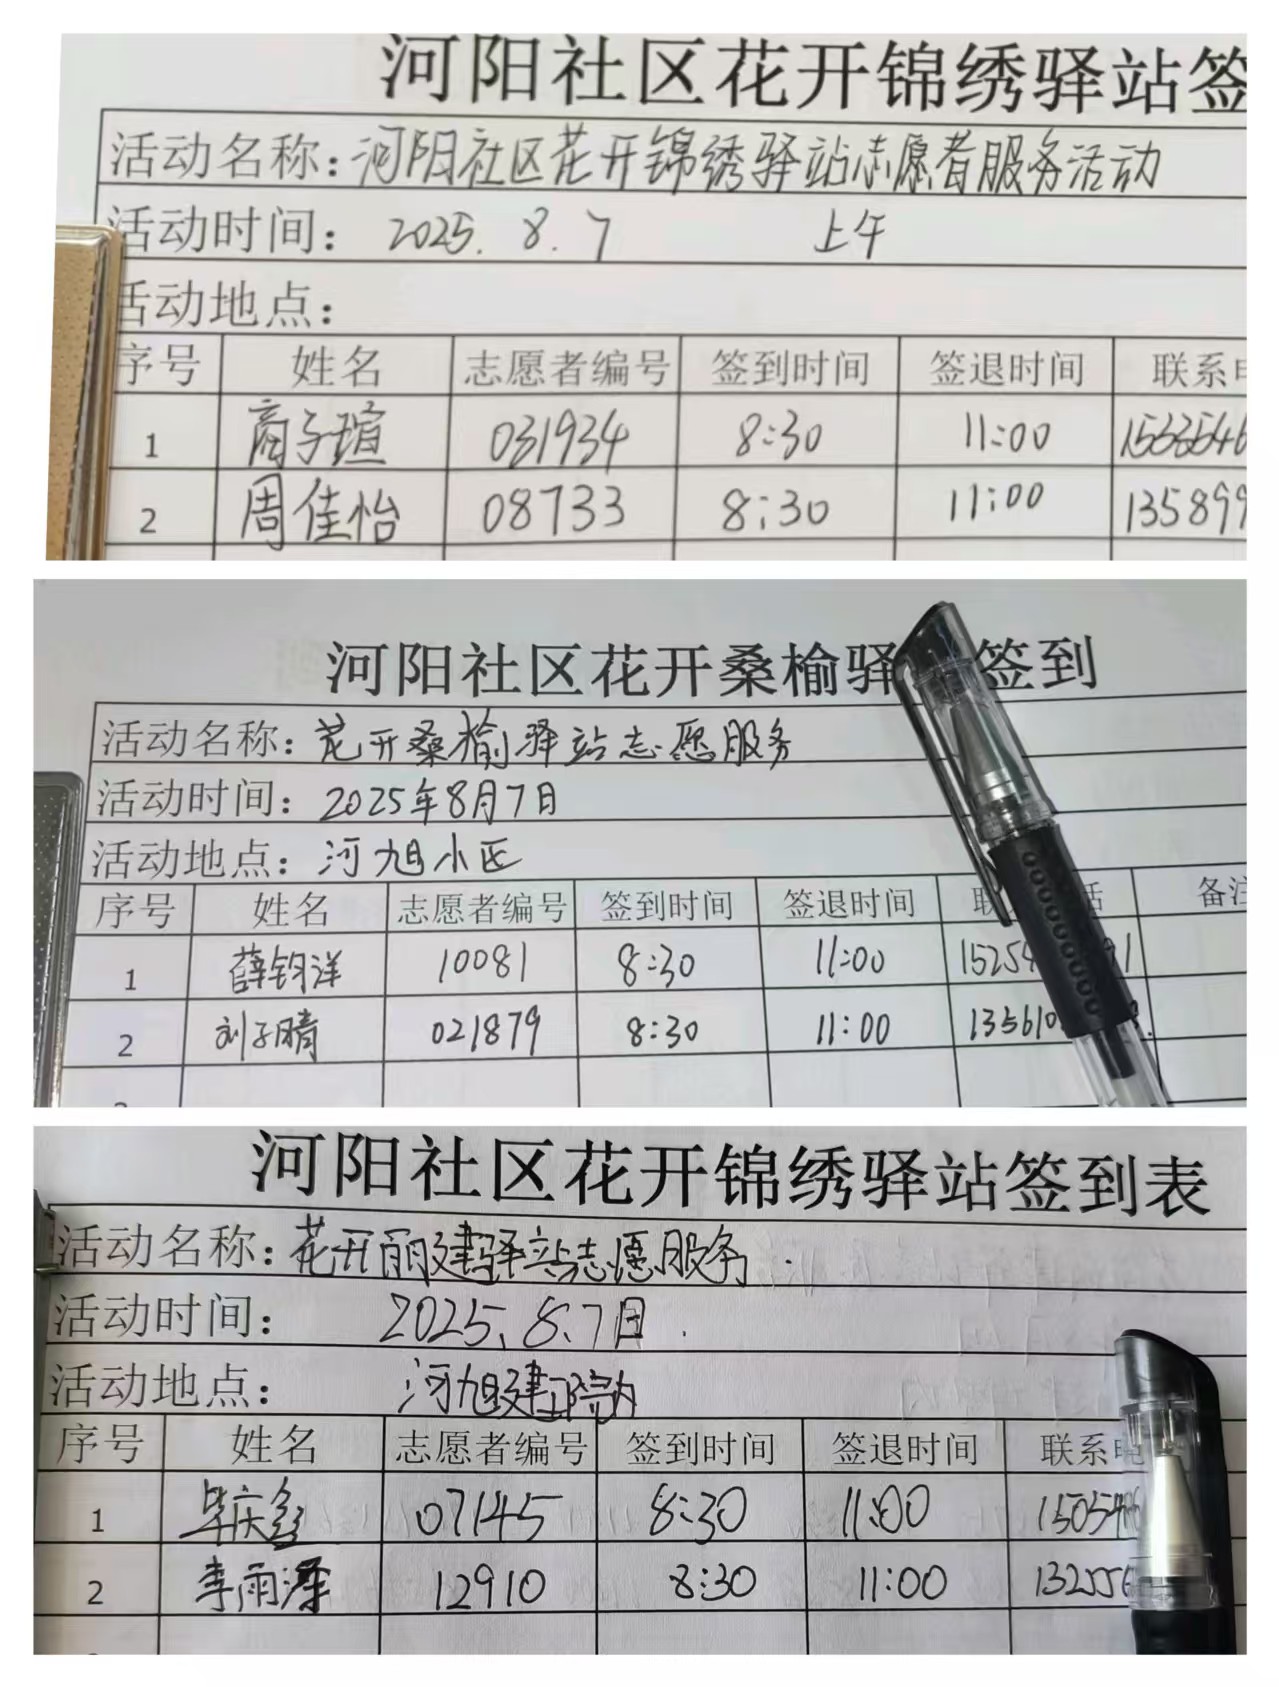 河阳社区花开锦绣驿站签
活动名称：河阳社区花开锦绣驿站志愿者服务活动
活动时间： 2025. 8. 7 上午
活动地点：
序号 姓名 志愿者编号 签到时间 签退时间 联系
1 商子瑄 031934 8:30 11:00
2 周佳怡 08733 8:30 11:00 135899
河阳社区花开桑榆驿 签到
活动名称：花开桑榆驿站志愿服务
活动时间：2025年8月7日
活动地点：河旭小区
序号 姓名 志愿者编号 签到时间 签退时间 联 话 备注
1 薛钧洋 10081 8:30 11:00 15254 91
2 刘子晴 021879 8:30 11:00 135610
河阳社区花开锦绣驿站签到表
活动名称：花开丽建驿站志愿服务.
活动时间： 2025、8、7日.
活动地点： 河旭建 院内
序号 姓名 志愿者编号 签到时间 签退时间 联系电
1 毕庆 07145 8:30 11:00
2 李雨泽 12910 8:30 11:00